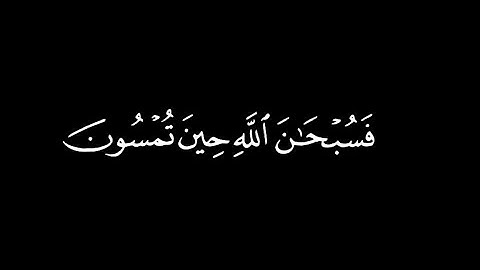 فَسُبْحَـٰنَ ٱللَّهِ حِينَ تُمْسُونَ